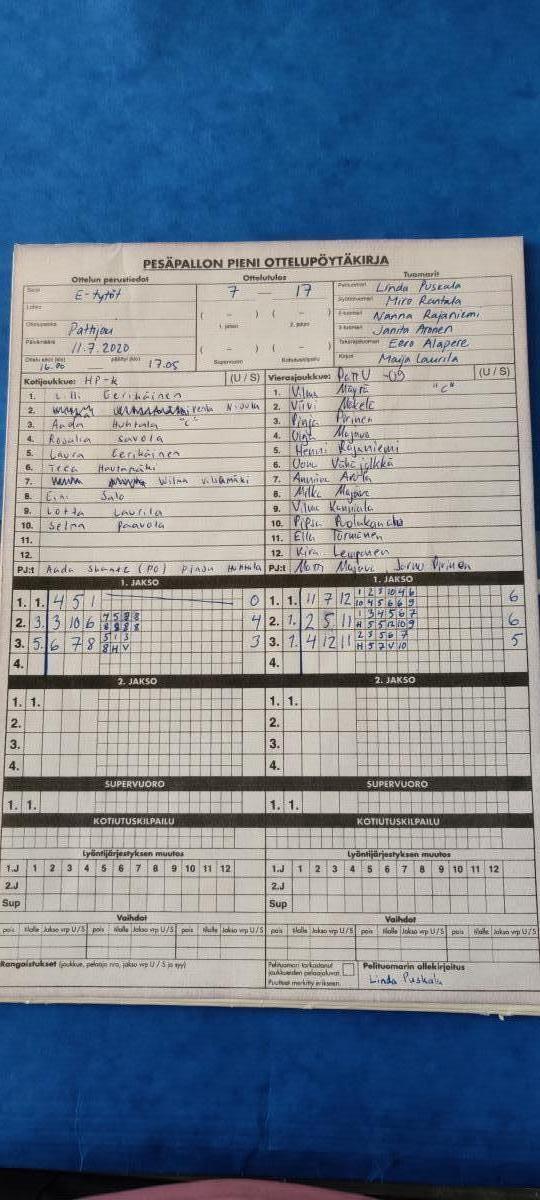 PESÄPALLON PIENI OTTELUPÖYTÄKIRJA
Ottelun perustiedot
Ottelutulos
Tuomarit
Sarja
E-tytöt
7 — 17
Pelituomari Linda Puskala
Syöttötuomari Miro Rantala
Lohko
( – ) ( – )
2-tuomari Nanna Rajaniemi
Ottelupaikka
Pattijoki
1. jakso
2. jakso
3-tuomari Janita Aronen
Päivämäärä
11.7.2020
( – ) ( – )
Takarajatuomari Eero Alapere
Ottelu alkoi (klo) päättyi (klo) 17.05
Supervuoro
Kotiutuskilpailu
Kirjuri Maija Laurila
Kotijoukkue: HP-K (U / S)
1. Lilli Eerikäinen
2. Niovuk
3. Aada Huhtala "C"
4. Rosalia Savola
5. Laura Eerikäinen
6. Teea Hautamäki
7. Wilma
8. Eini Salo
9. Lotta Laurila
10. Selma Paavola
11.
12.
PJ:t Aada (PO) Pinja Huhtala
Vierasjoukkue: PattU -09 (U / S)
1. Vilma Mäyrä "C"
2. Viivi Mäkelä
3. Pinja Pirinen
4. Majava
5. Henni Rajaniemi
6. Oona Vähäjylkkä
7. Anniina Arola
8. Milka Majava
9. Vilma
10. Pipsa Puolukanaho
11. Ella Törmänen
12. Kira Lemponen
PJ:t Matti Majava Jarno Pirinen
1. JAKSO
1. 1. 4 5 1 0
2. 3. 3 10 6 4
3. 5. 6 7 8 3
4.
2. JAKSO
1. 1.
2.
3.
4.
SUPERVUORO
1. 1.
KOTIUTUSKILPAILU
Lyöntijärjestyksen muutos
1.J 1 2 3 4 5 6 7 8 9 10 11 12
2.J
Sup
Vaihdot
pois tilalle Jakso vrp U / S pois tilalle Jakso vrp U / S pois tilalle Jakso vrp U / S
1. JAKSO
1. 1. 11 7 12 6
2. 1. 2 5 11 6
3. 1. 4 12 11 5
4.
2. JAKSO
1. 1.
2.
3.
4.
SUPERVUORO
1. 1.
KOTIUTUSKILPAILU
Lyöntijärjestyksen muutos
1.J 1 2 3 4 5 6 7 8 9 10 11 12
2.J
Sup
Vaihdot
pois tilalle Jakso vrp U / S pois tilalle Jakso vrp U / S pois tilalle Jakso vrp U / S
Rangaistukset (joukkue, pelaaja nro, jakso vrp U / S ja syy)
Pelituomari tarkastanut
joukkueiden pelaajaluvat.
Puutteet merkitty erikseen.
Pelituomarin allekirjoitus
Linda Puskala